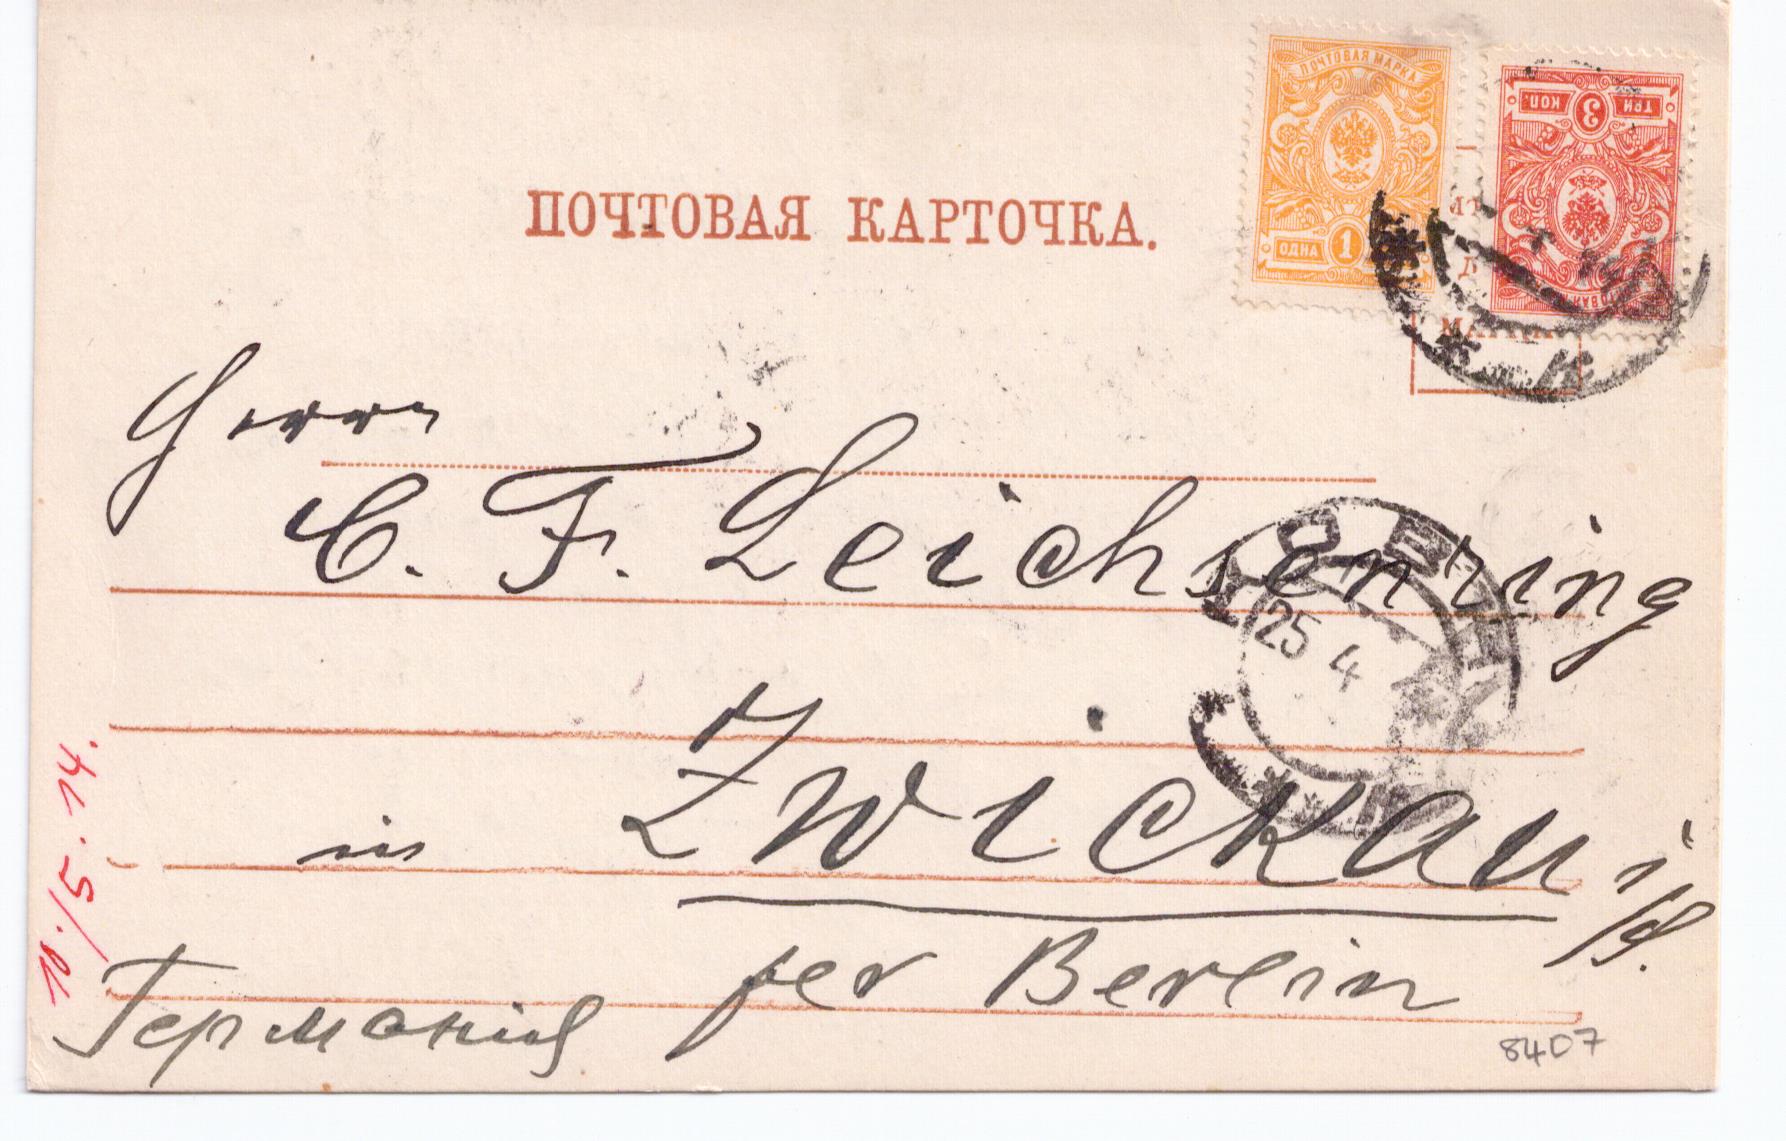 ПОЧТОВАЯ МАРКА
ОДНА 1
ТРИ 3 КОП.
ПОЧТОВАЯ КАРТОЧКА.
Herrn
C. F. Leichsenring
25 4
in Zwickau i/S.
per Berlin
Германія
10./5. 14.
8407